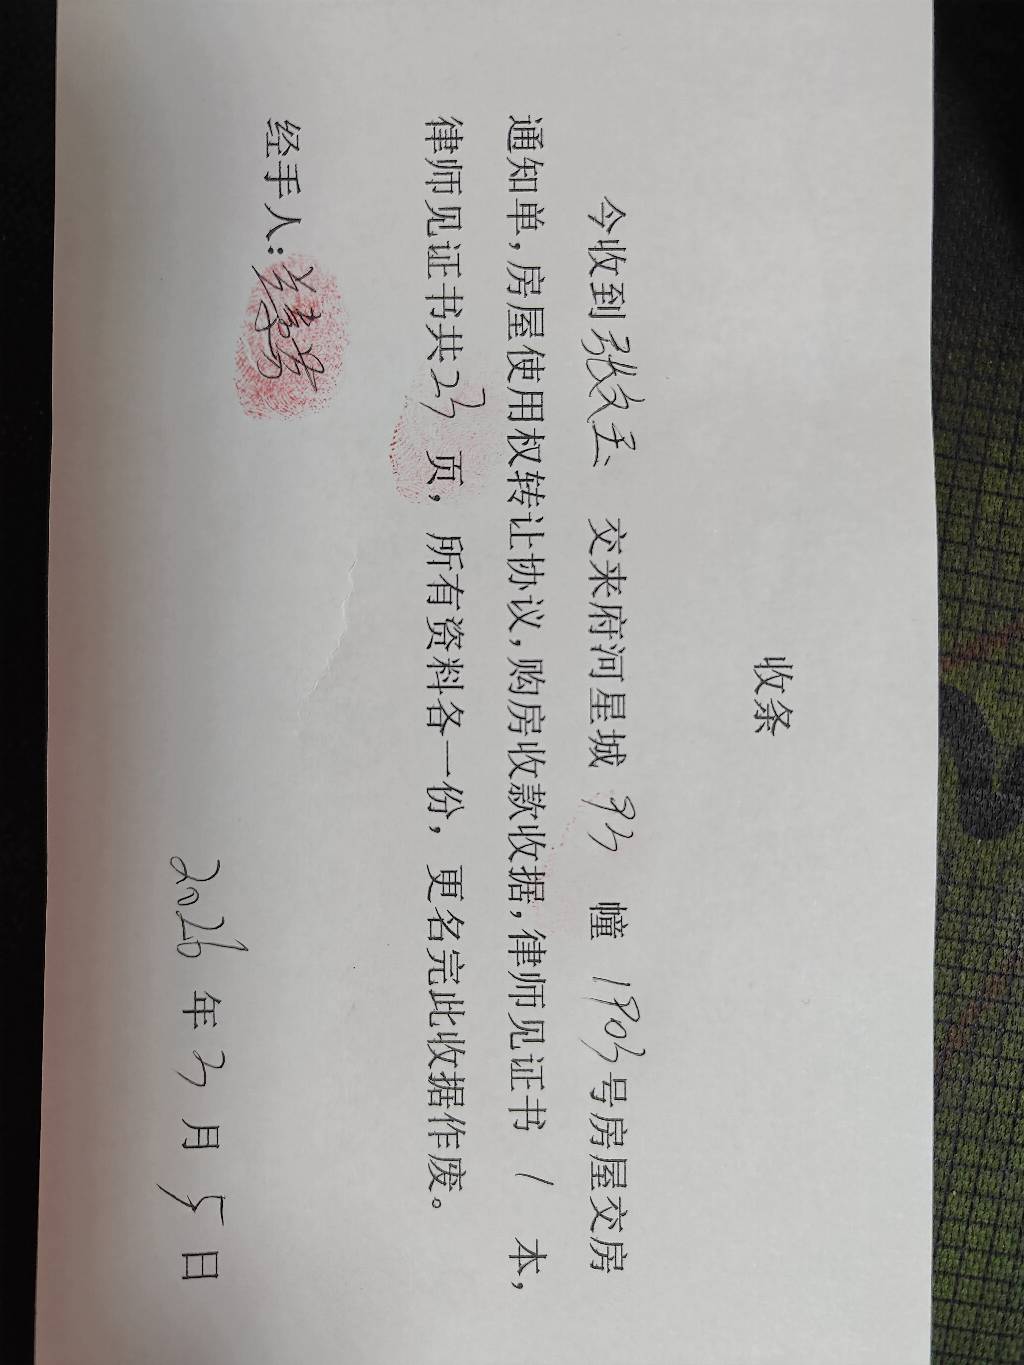 收条
今收到张文玉 交来府河星城 93 幢 1903号房屋交房
通知单,房屋使用权转让协议,购房收款收据,律师见证书 1 本,
律师见证书共23页,所有资料各一份,更名完此收据作废。
经手人:
2026年3月5日